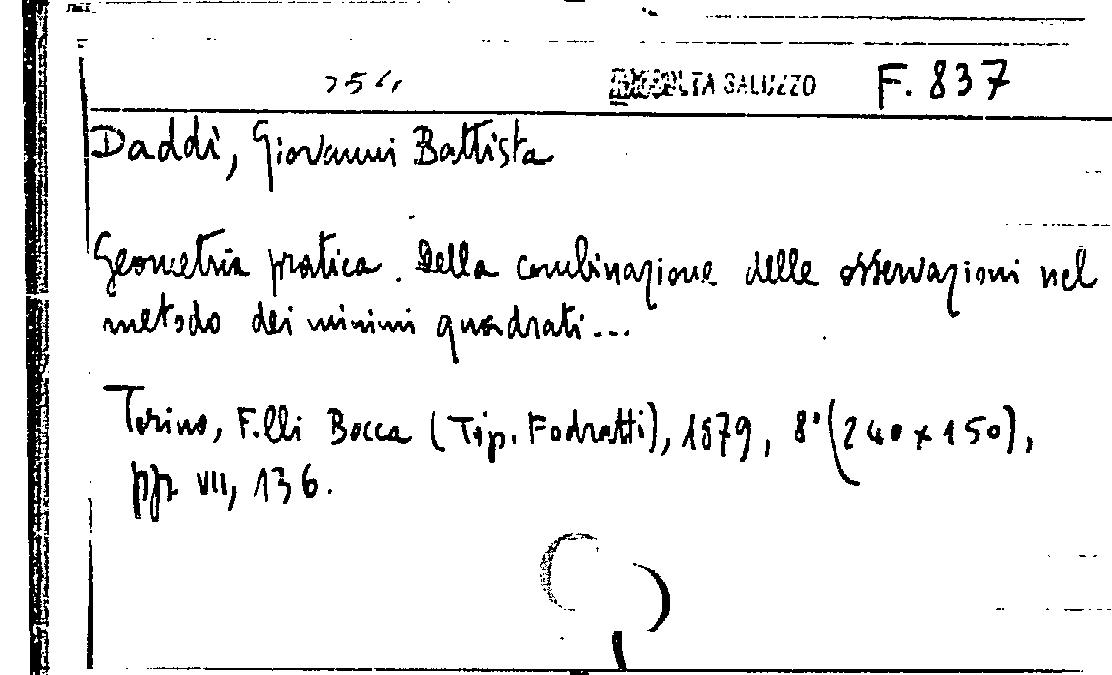 254 RACCOLTA SALUZZO F. 837
Daddi, Giovanni Battista
Geometria pratica. Della combinazione delle osservazioni nel
metodo dei minimi quadrati...
Torino, F.lli Bocca (Tip. Fodratti), 1879, 8° (240 x 150),
pp. VII, 136.